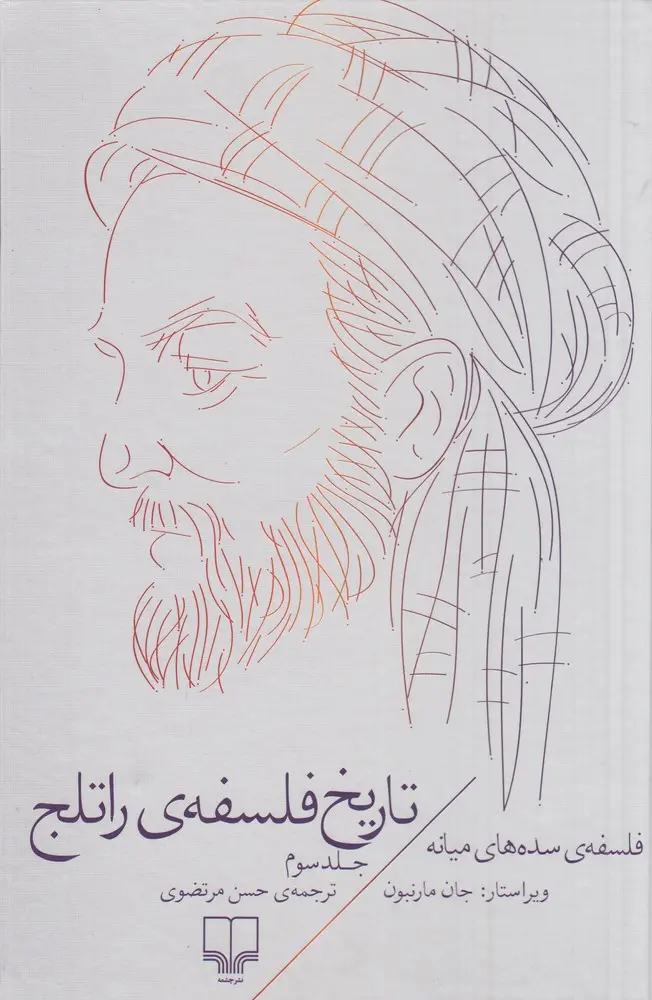 تاریخ فلسفه‌ی راتلج
جلد سوم
فلسفه‌ی سده‌های میانه
ویراستار: جان مارنبون
ترجمه‌ی حسن مرتضوی
نشرچشمه